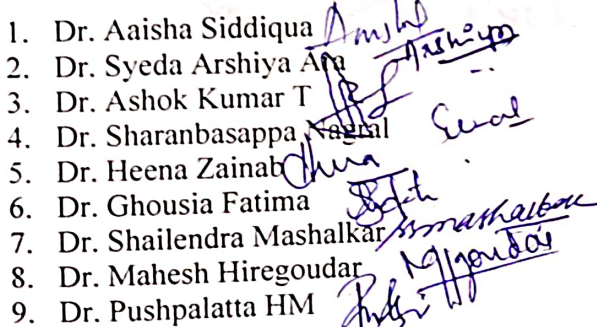 1. Dr. Aaisha Siddiqua
2. Dr. Syeda Arshiya Ara Arshiya
3. Dr. Ashok Kumar T
4. Dr. Sharanbasappa Nagral
5. Dr. Heena Zainab
6. Dr. Ghousia Fatima
7. Dr. Shailendra Mashalkar
8. Dr. Mahesh Hiregoudar
9. Dr. Pushpalatta HM